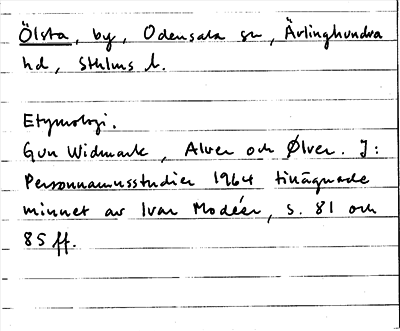 Ölsta, by, Odensala sn, Ärlinghundra
hd, Sthlms l.
Etymologi.
Gun Widmark, Alver och Ølver. I:
Personnamnsstudier 1964 tillägnade
minnet av Ivar Modéer, s. 81 och
85 ff.